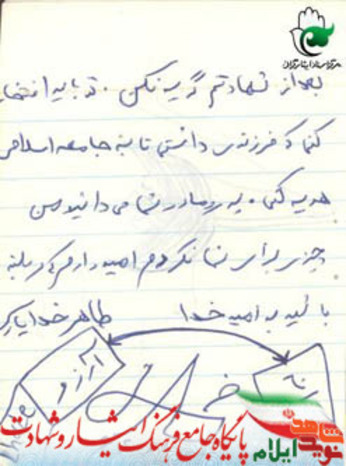 بعد از شهادتم گریه نکن. تو باید افتخار
کنی که فرزندی داشتی تا به جامعه اسلامی
هدیه کنی. پدر و مادر شما می دانید من
چیزی برای شما نکردم امیدوارم که مرا
باشید به امید خدا طاهر خدایاری
آرزو
پایگاه جامع فرهنگ ایثار و شهادت
نوید شاهد ایلام